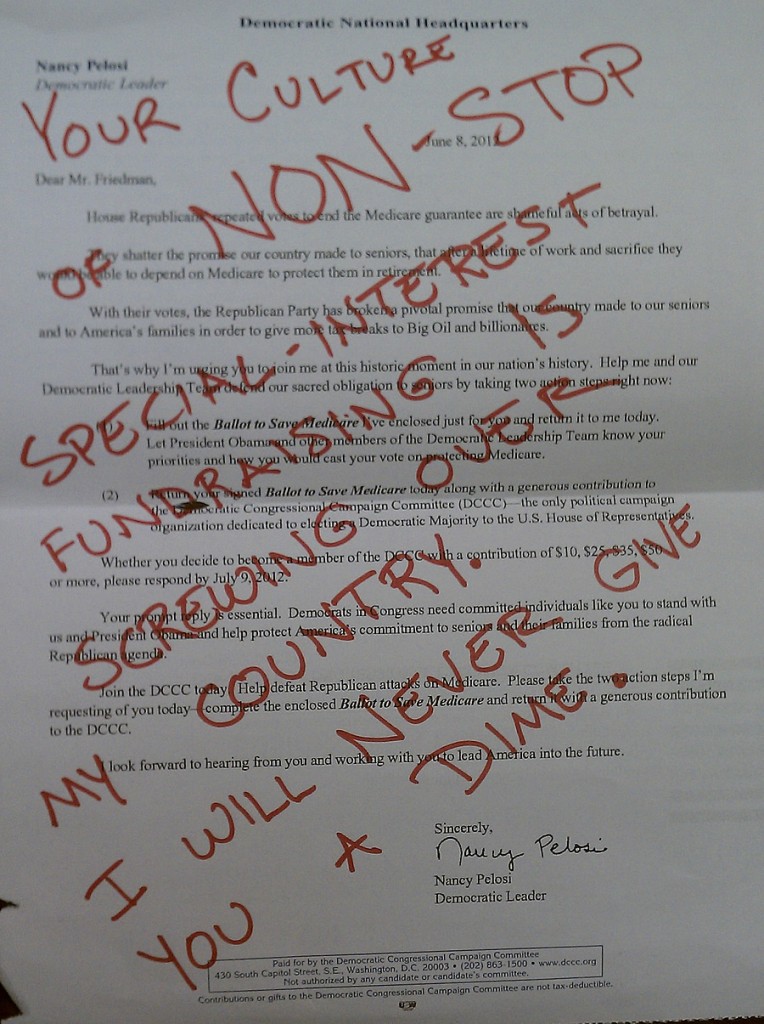 Democratic National Headquarters
Nancy Pelosi
Democratic Leader
June 8, 2012
Dear Mr. Friedman,
House Republicans' repeated votes to end the Medicare guarantee are shameful acts of betrayal.
They shatter the promise our country made to seniors, that after a lifetime of work and sacrifice they
would be able to depend on Medicare to protect them in retirement.
With their votes, the Republican Party has broken a pivotal promise that our country made to our seniors
and to America's families in order to give more tax breaks to Big Oil and billionaires.
That's why I'm urging you to join me at this historic moment in our nation's history. Help me and our
Democratic Leadership Team defend our sacred obligation to seniors by taking two action steps right now:
(1) Fill out the Ballot to Save Medicare I've enclosed just for you and return it to me today.
Let President Obama and other members of the Democratic Leadership Team know your
priorities and how you would cast your vote on protecting Medicare.
(2) Return your signed Ballot to Save Medicare today along with a generous contribution to
the Democratic Congressional Campaign Committee (DCCC)—the only political campaign
organization dedicated to electing a Democratic Majority to the U.S. House of Representatives.
Whether you decide to become a member of the DCCC with a contribution of $10, $25, $35, $50
or more, please respond by July 9, 2012.
Your prompt reply is essential. Democrats in Congress need committed individuals like you to stand with
us and President Obama and help protect America's commitment to seniors and their families from the radical
Republican agenda.
Join the DCCC today. Help defeat Republican attacks on Medicare. Please take the two action steps I'm
requesting of you today—complete the enclosed Ballot to Save Medicare and return it with a generous contribution
to the DCCC.
I look forward to hearing from you and working with you to lead America into the future.
Sincerely,
Nancy Pelosi
Nancy Pelosi
Democratic Leader
Paid for by the Democratic Congressional Campaign Committee
430 South Capitol Street, S.E., Washington, D.C. 20003 • (202) 863-1500 • www.dccc.org
Not authorized by any candidate or candidate's committee.
Contributions or gifts to the Democratic Congressional Campaign Committee are not tax-deductible.
YOUR CULTURE
OF NON-STOP
SPECIAL-INTEREST
FUNDRAISING IS
SCREWING OVER
MY COUNTRY.
I WILL NEVER GIVE
YOU A DIME.